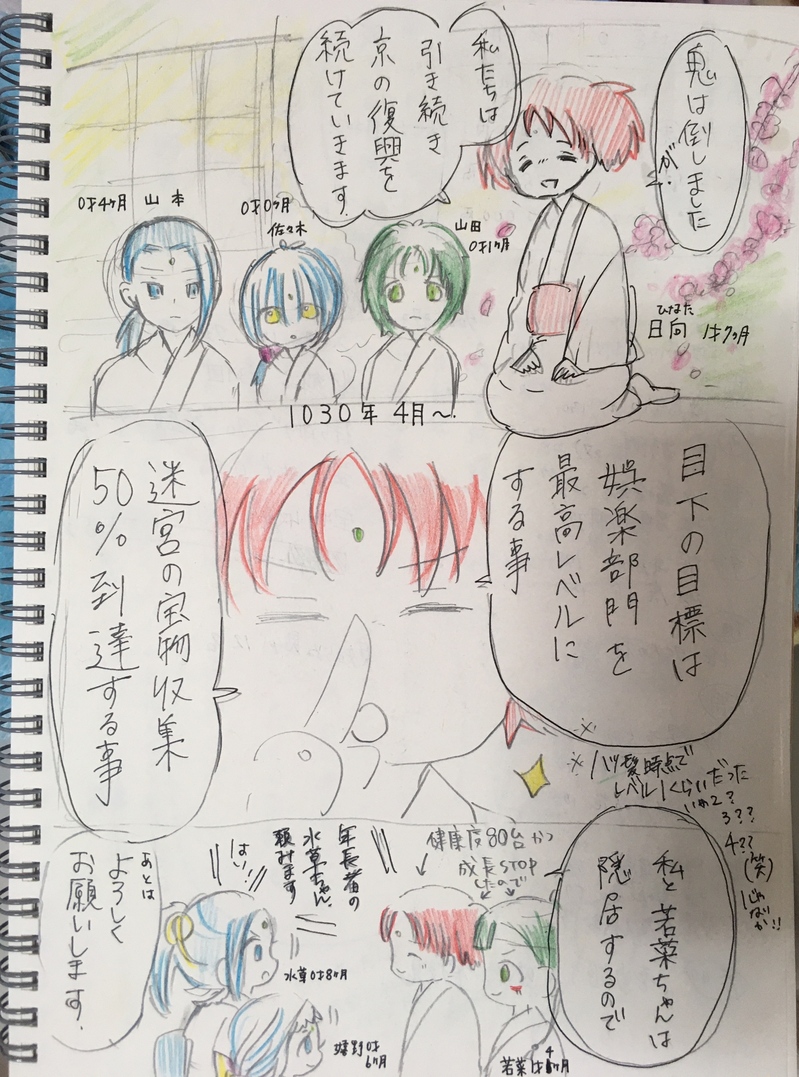 鬼は倒しました
が、
私たちは
引き続き
京の復興を
続けていきます。
日向 1才7ヶ月
ひなた
山田
0才1ヶ月
0才0ヶ月
佐々木
0才4ヶ月 山本
1030年 4月～
目下の目標は
娯楽部門を
最高レベルに
する事
迷宮の宝物収集
50％到達する事
私と若菜ちゃんは
隠居するので
健康度80台かつ
成長STOP
したので
年長者の
水草ちゃん、
頼みます
はい!
あとは
よろしく
お願いします。
水草0才8ヶ月
嬉野0才
6ヶ月
若菜1才4ヶ月
時点で
レベル1くらいだった
3??
4??
(笑)
じゃなか!!